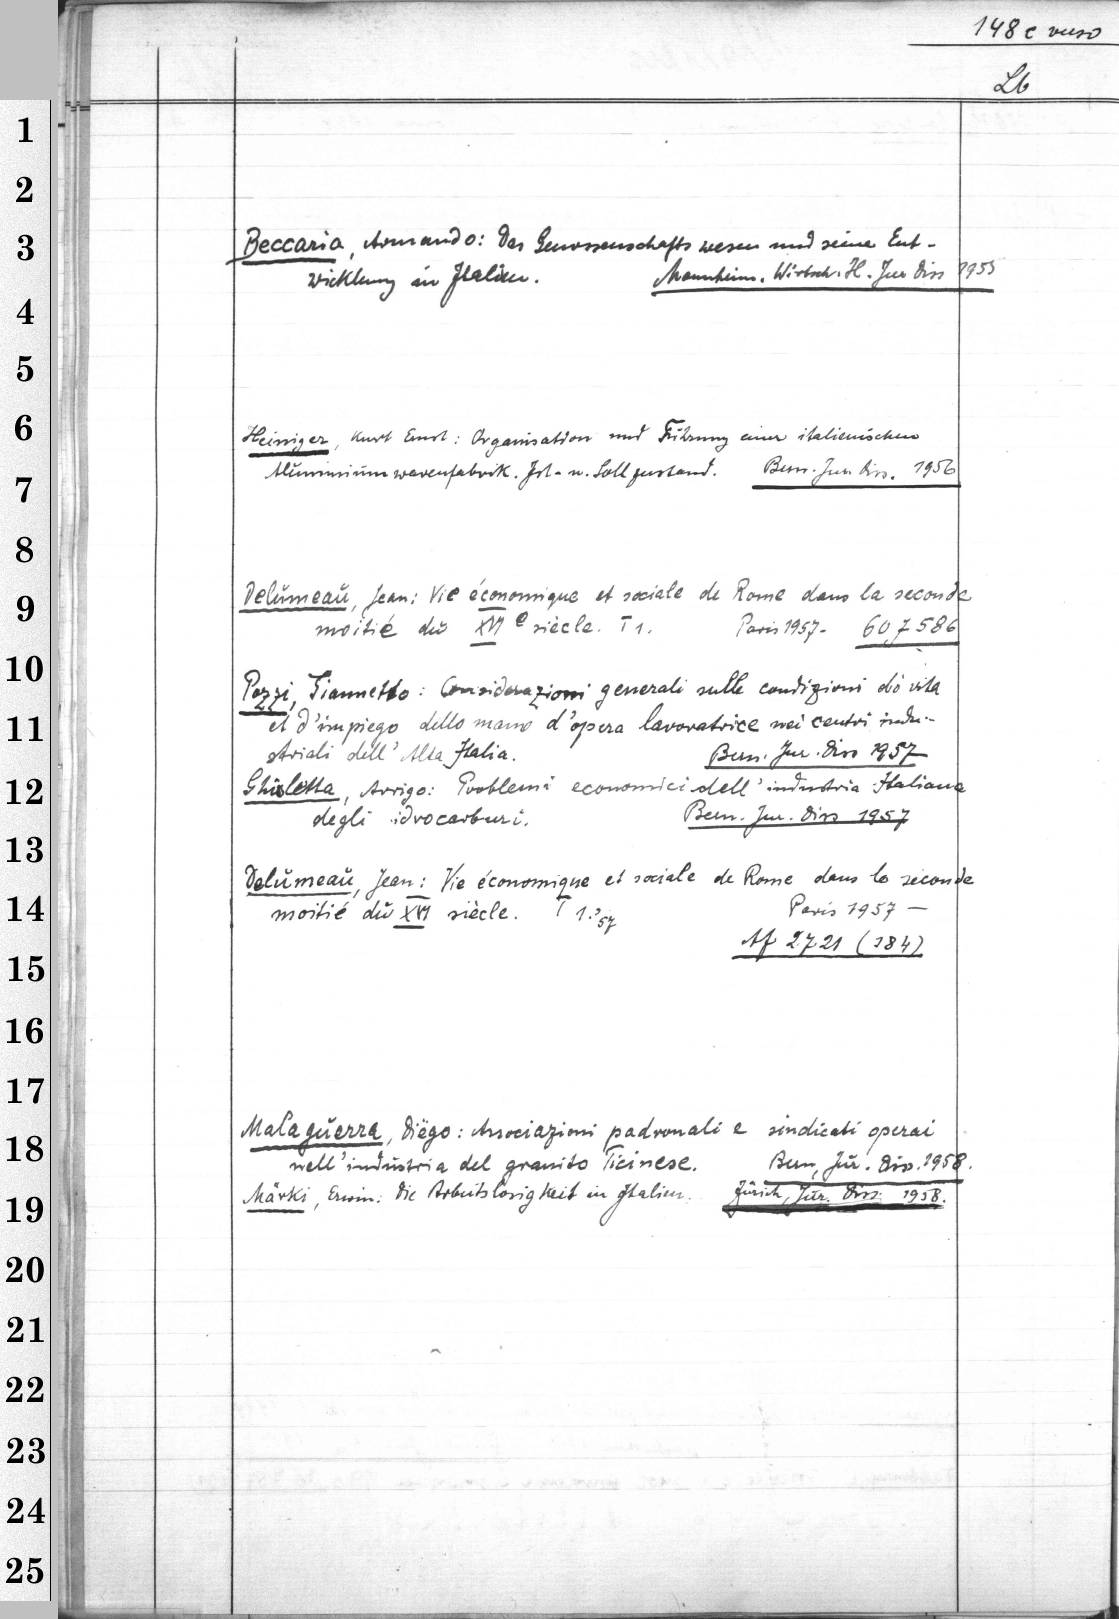 148 c verso
Lb
1
2
3
4
5
6
7
8
9
10
11
12
13
14
15
16
17
18
19
20
21
22
23
24
25
Beccaria, Armando: Das Genossenschaftswesen und seine Ent-
wicklung in Italien. Mannheim. Wirtsch. H. Jur Diss 1955
Heiniger, Kurt Ernst: Organisation und Führung einer italienischen
Aluminiumwarenfabrik. Ist- u. Sollzustand. Bern. Jur. Diss. 1956
Delŭmeaŭ, Jean: Vie économique et sociale de Rome dans la seconde
moitié dŭ XVI e siècle. T 1. Paris 1957- 607586
Pozzi, Giannetto: Considerazioni generali sulle condizioni di vita
et d'impiego dello mano d'opera lavoratrice nei centri indu-
striali dell' Alta Italia. Bern. Jur. Diss 1957
Ghisletta, Arrigo: Problemi economici dell' industria Italiana
degli idrocarburi. Bern. Jur. Diss 1957
Delŭmeaŭ, Jean: Vie économique et sociale de Rome dans la seconde
moitié dŭ XVI siècle. T 1.'57 Paris 1957 —
Af 2721 (184)
Malagŭerra, Diëgo: Associazioni padronali e sindicati operai
nell' indŭstria del granito Ticinese. Bern, Jŭr. Diss. 1958.
Märki, Erwin: Die Arbeitslosigkeit in Italien. Zürich, Jŭr. Diss. 1958.